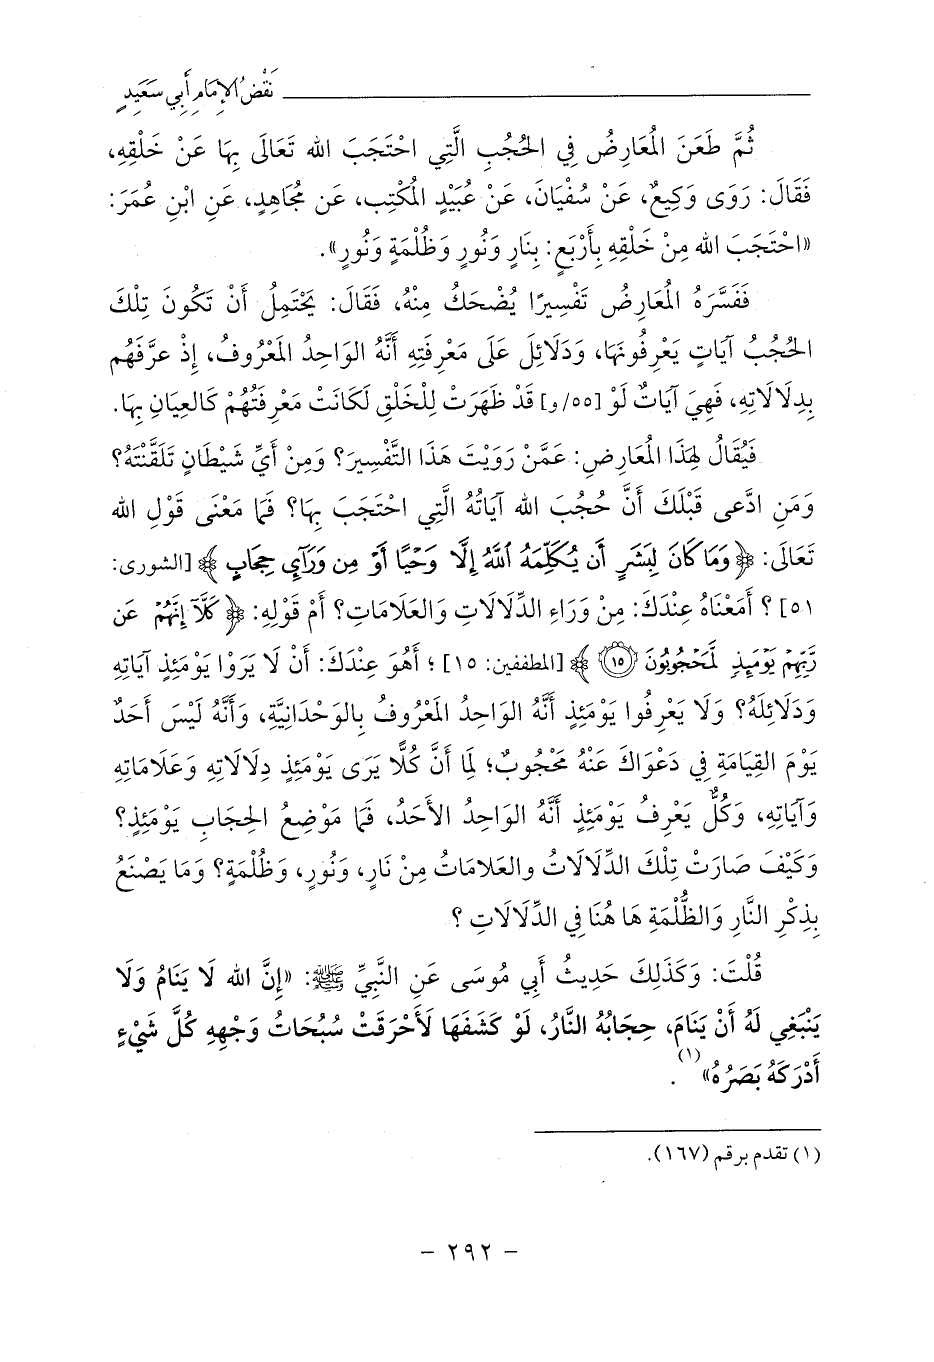 نَقْضُ الإِمَامِ أَبِي سَعِيدٍ
ثُمَّ طَعَنَ المُعَارِضُ فِي الحُجُبِ الَّتِي احْتَجَبَ الله تَعَالَى بِهَا عَنْ خَلْقِهِ،
فَقَالَ: رَوَى وَكِيعٌ، عَنْ سُفْيَانَ، عَنْ عُبَيْدٍ المُكْتِبِ، عَن مُجَاهِدٍ، عَنِ ابْنِ عُمَرَ:
«احْتَجَبَ الله مِنْ خَلْقِهِ بِأَرْبَعٍ: بِنَارٍ وَنُورٍ وَظُلْمَةٍ وَنُورٍ».
فَفَسَّرَهُ المُعَارِضُ تَفْسِيرًا يُضْحَكُ مِنْهُ، فَقَالَ: يَحْتَمِلُ أَنْ تَكُونَ تِلْكَ
الحُجُبُ آيَاتٍ يَعْرِفُونَهَا، وَدَلَائِلَ عَلَى مَعْرِفَتِهِ أَنَّهُ الوَاحِدُ المَعْرُوفُ، إِذْ عَرَّفَهُم
بِدِلَالَاتِهِ، فَهِيَ آيَاتٌ لَوْ [٥٥/و] قَدْ ظَهَرَتْ لِلْخَلْقِ لَكَانَتْ مَعْرِفَتُهُمْ كَالعِيَانِ بِهَا.
فَيُقَالُ لِهَذَا المُعَارِضِ: عَمَّنْ رَوَيْتَ هَذَا التَّفْسِيرَ؟ وَمِنْ أَيِّ شَيْطَانٍ تَلَقَّنْتَهُ؟
وَمَنِ ادَّعى قَبْلَكَ أَنَّ حُجُبَ الله آيَاتُهُ الَّتِي احْتَجَبَ بِهَا؟ فَمَا مَعْنَى قَوْلِ الله
تَعَالَى: ﴿وَمَا كَانَ لِبَشَرٍ أَن يُكَلِّمَهُ ٱللَّهُ إِلَّا وَحْيًا أَوْ مِن وَرَآيِ حِجَابٍ﴾ [الشورى:
٥١]؟ أَمَعْنَاهُ عِنْدَكَ: مِنْ وَرَاءِ الدِّلَالَاتِ وَالعَلَامَاتِ؟ أَمْ قَوْلِهِ: ﴿كَلَّآ إِنَّهُمْ عَن
رَّبِّهِمْ يَوْمَئِذٍ لَّمَحْجُوبُونَ ١٥﴾ [المطففين: ١٥]؛ أَهُوَ عِنْدَكَ: أَنْ لَا يَرَوْا يَوْمَئِذٍ آيَاتِهِ
وَدَلَائِلَهُ؟ وَلَا يَعْرِفُوا يَوْمَئِذٍ أَنَّهُ الوَاحِدُ المَعْرُوفُ بِالوَحْدَانِيَّةِ، وَأَنَّهُ لَيْسَ أَحَدٌ
يَوْمَ القِيَامَةِ فِي دَعْوَاكَ عَنْهُ مَحْجُوبٌ؛ لِمَا أَنَّ كُلًّا يَرَى يَوْمَئِذٍ دِلَالَاتِهِ وَعَلَامَاتِهِ
وَآيَاتِهِ، وَكُلٌّ يَعْرِفُ يَوْمَئِذٍ أَنَّهُ الوَاحِدُ الأَحَدُ، فَمَا مَوْضِعُ الحِجَابِ يَوْمَئِذٍ؟
وَكَيْفَ صَارَتْ تِلْكَ الدِّلَالَاتُ والعَلَامَاتُ مِنْ نَارٍ، وَنُورٍ، وَظُلْمَةٍ؟ وَمَا يَصْنَعُ
بِذِكْرِ النَّارِ وَالظُّلْمَةِ هَا هُنَا فِي الدِّلَالَاتِ ؟
قُلْتَ: وَكَذَلِكَ حَدِيثُ أَبِي مُوسَى عَنِ النَّبِيِّ ﷺ: «إِنَّ الله لَا يَنَامُ وَلَا
يَنْبَغِي لَهُ أَنْ يَنَامَ، حِجَابُهُ النَّارُ، لَوْ كَشَفَهَا لَأَحْرَقَتْ سُبُحَاتُ وَجْهِهِ كُلَّ شَيْءٍ
أَدْرَكَهُ بَصَرُهُ»(١).
(١) تقدم برقم (١٦٧).
- ٢٩٢ -